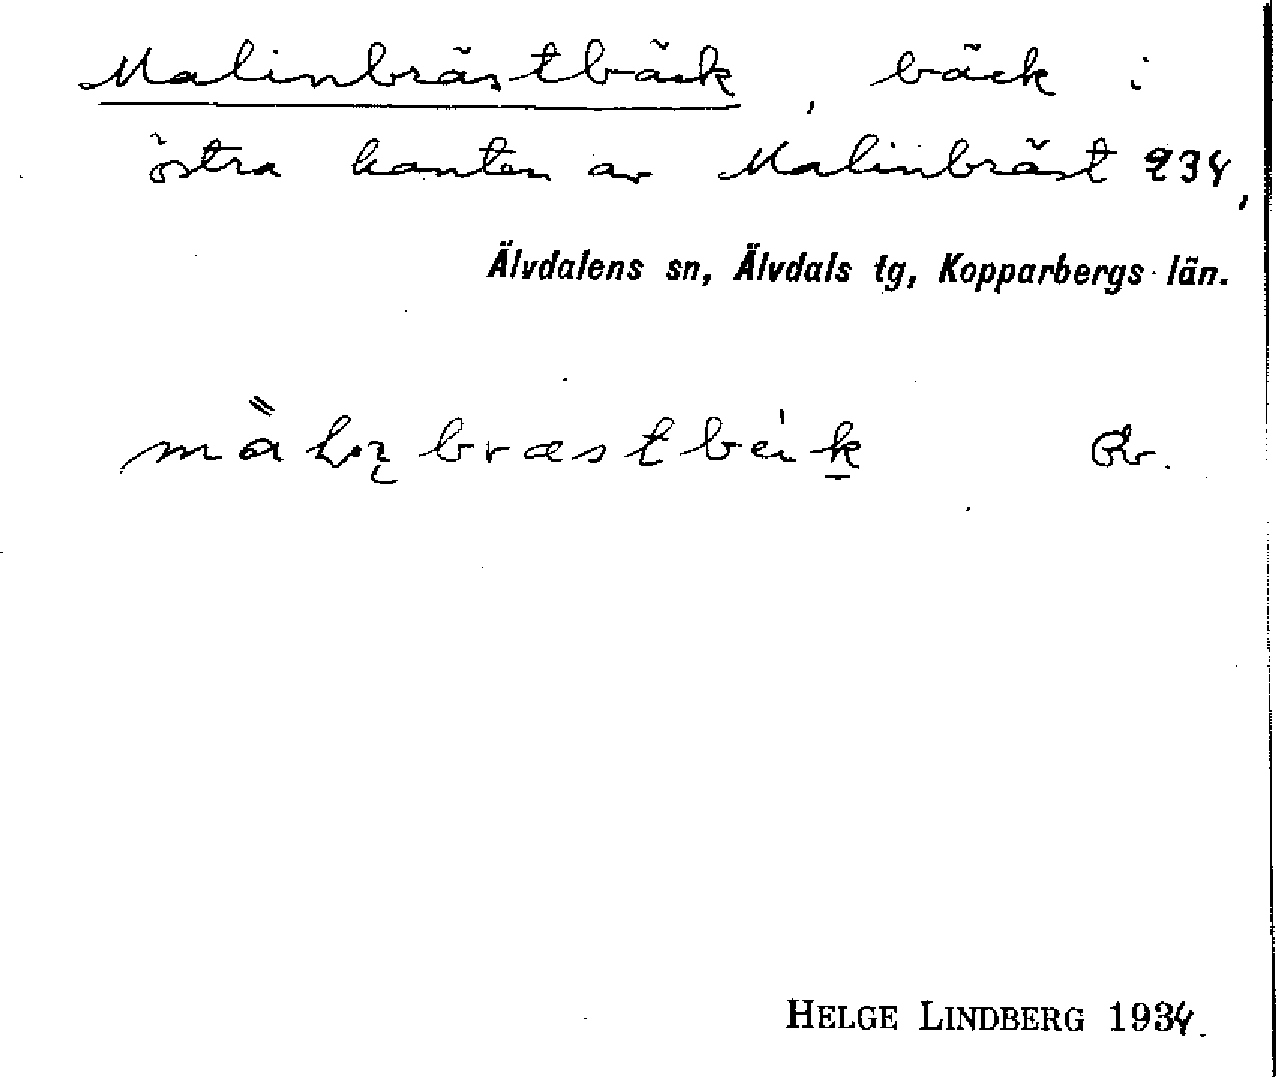 Malinbrästbäck, bäck i
östra kanten av Malinbräst 234,
Älvdalens sn, Älvdals tg, Kopparbergs län.
HELGE LINDBERG 1934.